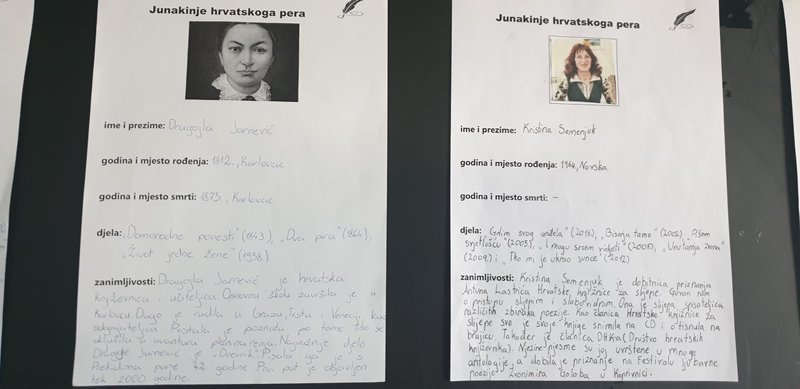 Junakinje hrvatskoga pera
ime i prezime: Dragojla Jarnević
godina i mjesto rođenja: 1812., Karlovac
godina i mjesto smrti: 1875., Karlovac
djela: „Domorodne povesti" (1843), „Dva pira" (1864),
„Život jedne žene" (1958)
zanimljivosti: Dragojla Jarnević je hrvatska
književnica i učiteljica. Osnovnu školu završila je u
Karlovcu. Duge je radila u Grazu, Trstu i Veneciji kao
odgajateljica. Postala je poznata po tome što se
uključila u avanturu planinarenja. Najvažnije djelo
Dragojle Jarnević je „Dnevnik". Pisala ga je s
prekidima pune 42 godine. Prvi put je objavljen
tek 2000. godine.
Junakinje hrvatskoga pera
ime i prezime: Kristina Semenjuk
godina i mjesto rođenja: 1964, Norska
godina i mjesto smrti: –
djela: „Grlim svog anđela" (2016), „Biserja tame" (2002),
svjetlošću" (2005), „I mogu srcem vidjeti" (2007), „Unutarnja zvona"
(2009) i „Tko mi je ukrao sunce" (2012)
zanimljivosti: Kristina Semenjuk je dobitnica priznanja
Antuna Lastrića Hrvatske knjižnice za slijepe. Govori nam
o pristupu slijepim i slabovidnim. Ona je slijepa spisateljica
različitih zbiraka poezije. Kao članica Hrvatske knjižnice za
slijepe sve je svoje knjige snimila na CD i otisnula na
brajicu. Također je članica DHKa (Društvo hrvatskih
književnika). Njezine pjesme su joj uvrštene u mnoge
antologije, a dobila je priznanje na Festivalu ljubavne
poezije Zvonimira Goloba u Koprivnici.